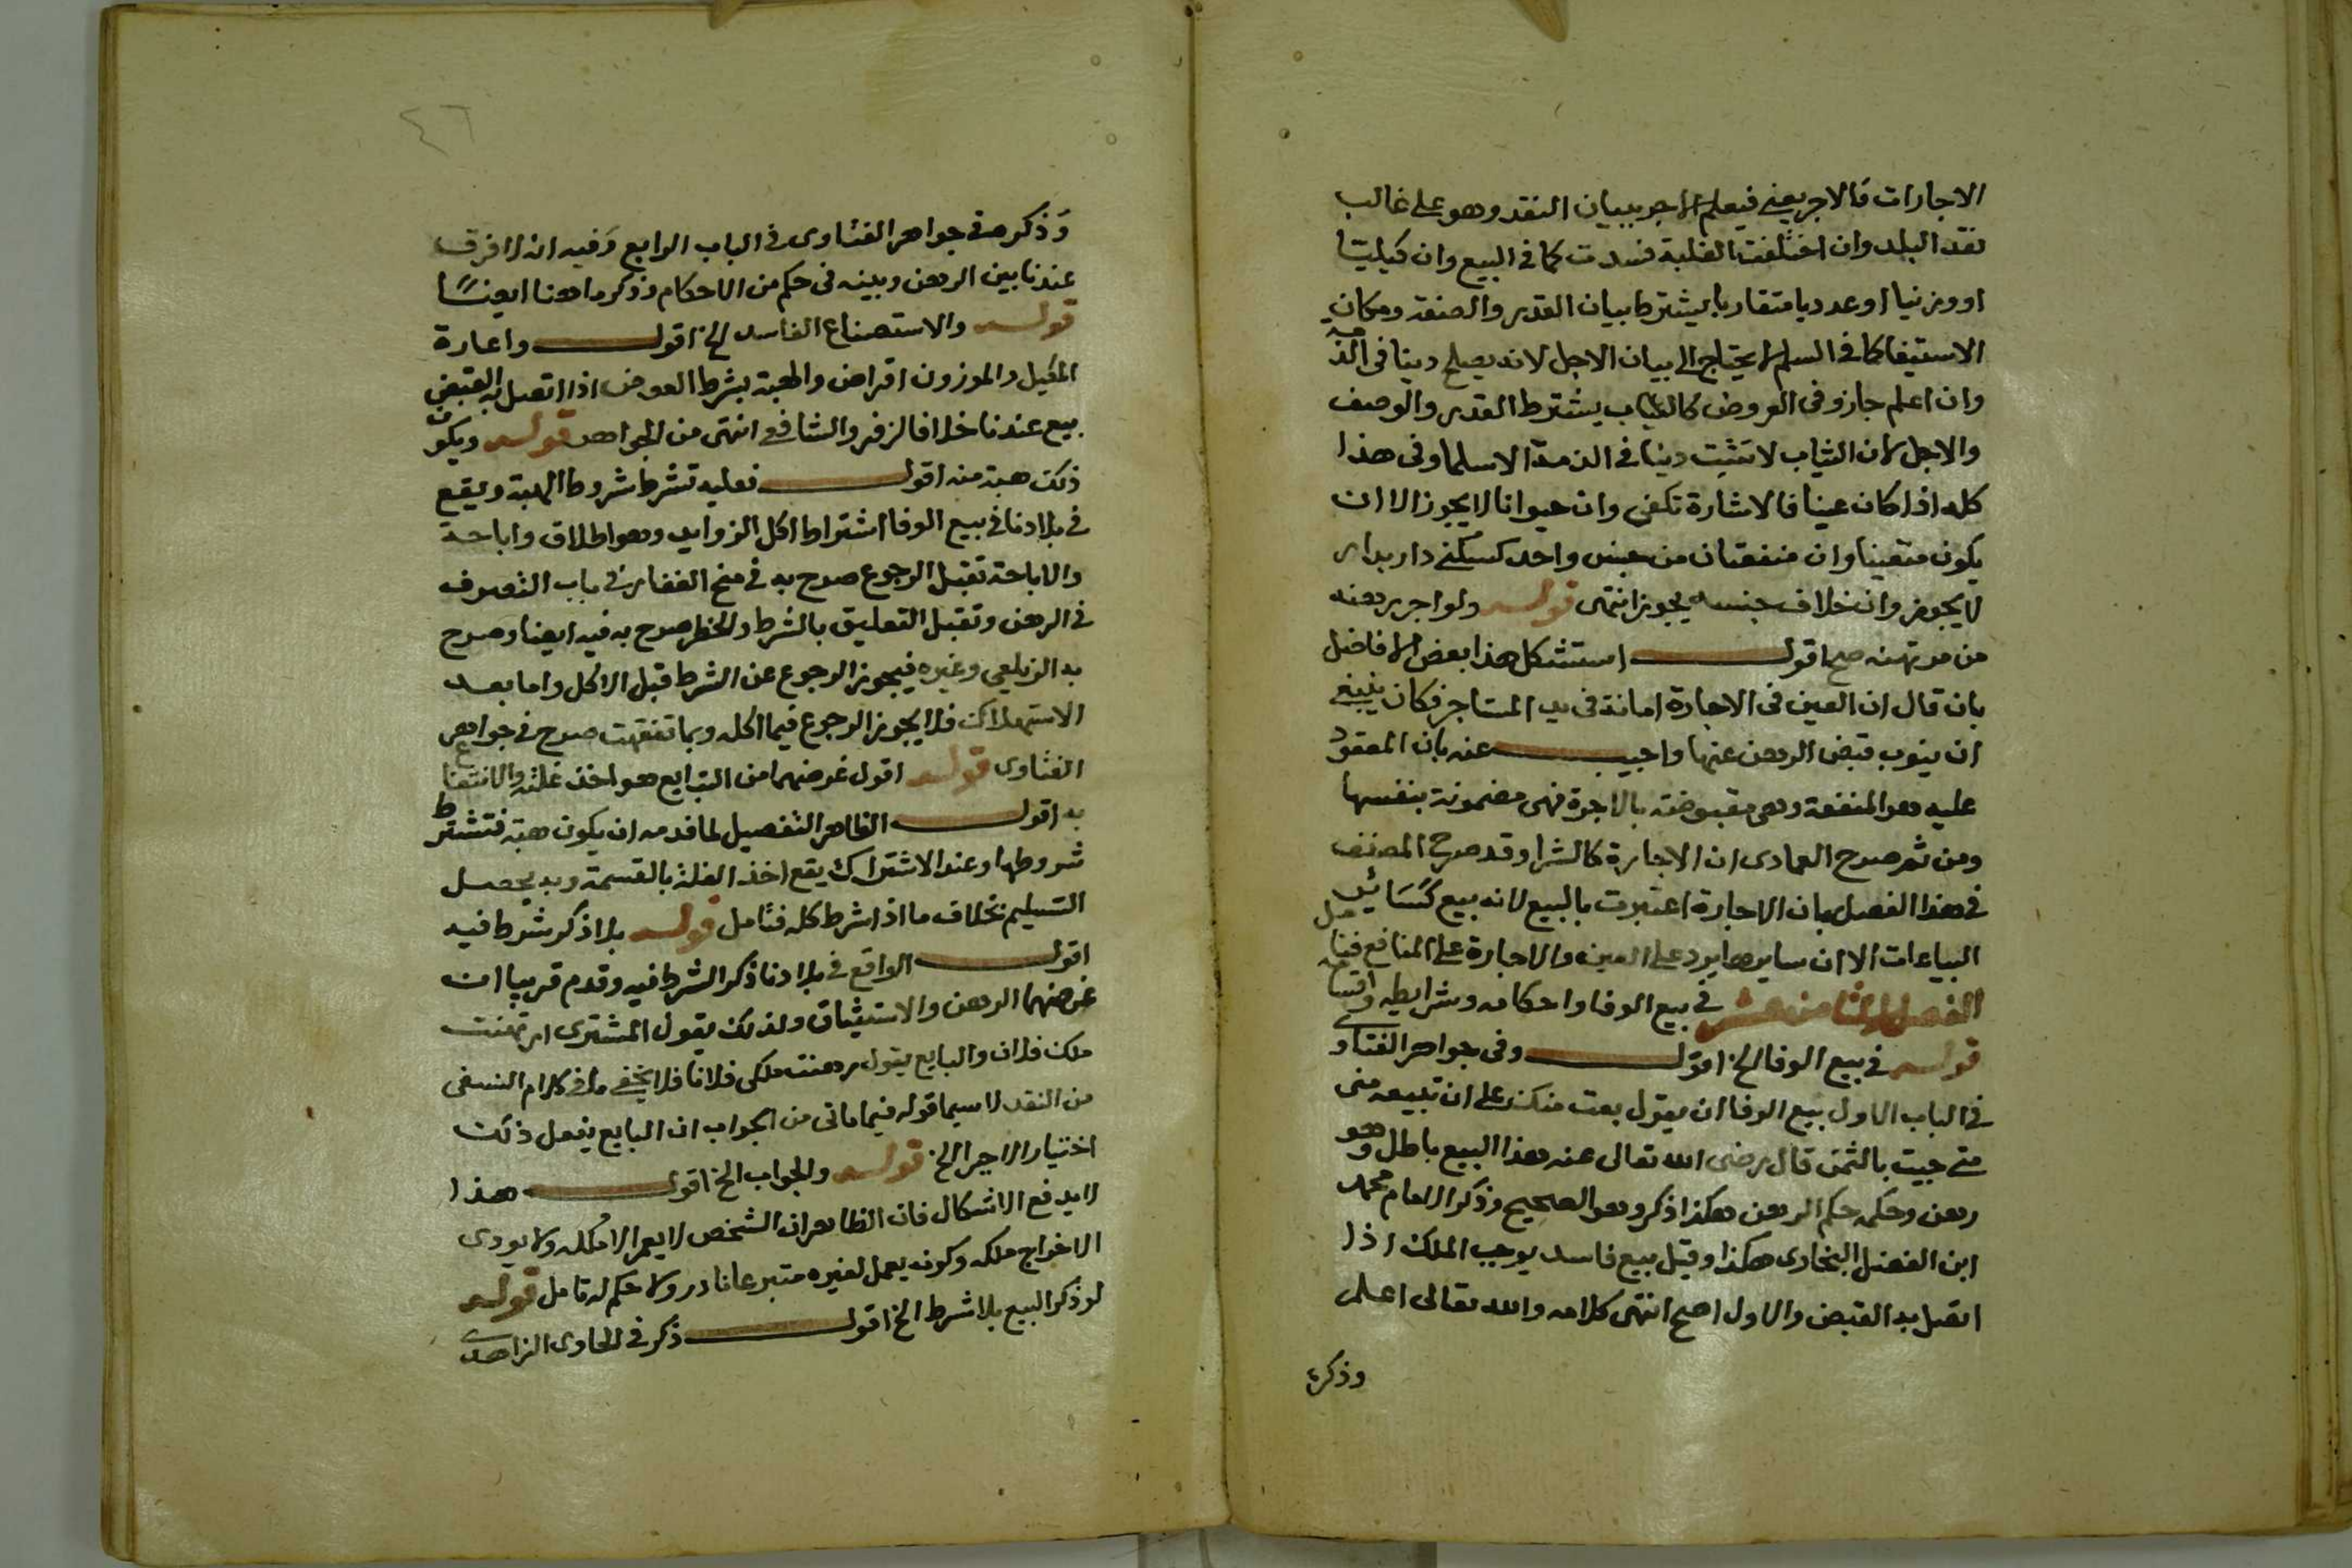 الاجارات فالاجر يعني فيعلم الاجر ببيان النقد وهو على غالب
نقد البلد وان اختلفت الغلبة فسدت كما في البيع وان كيليا
او وزنيا او عدديا متقاربا يشترط بيان القدر والصفة ومكان
الاستيفا كما في السلم لا يحتاج الى بيان الاجل لانه يصلح دينا في الذمة
وان اعلم جاز وفي العروض كالثياب يشترط القدر والوصف
والاجل لان الثياب لا تثبت دينا في الذمة الا سلما وفي هذا
كله اذا كان عينا فالاشارة تكفي وان حيوانا لا يجوز الا ان
يكون متعينا وان منفعتان من جنس واحد كسكنى دار بدار
لا يجوز وان خلاف جنسه يجوز انتهى قوله ولو اجر رهنه
من مرتهنه صح اقول استشكل هذا بعض الافاضل
بان قال ان العين في الاجارة امانة في يد المستاجر فكان ينبغي
ان ينوب قبض الرهن عنها واجيب عنه بان المعقود
عليه هو المنفعة وهي مقبوضة بالاجرة فهي مضمونة بنفسها
ومن ثم صرح العمادى ان الاجارة كالشرا وقد صرح المصنف
في هذا الفصل بان الاجارة اعتبرت بالبيع لانه بيع كسائر
البياعات الا ان سايرها يرد على العين والاجارة على المنافع فتامل
الفصل الثامن عشر في بيع الوفا واحكامه وشرايطه واقسامه
قوله في بيع الوفا الخ اقول وفي جواهر الفتاوى
في الباب الاول بيع الوفا ان يقول بعت منك على ان تبيعه مني
متى جيت بالثمن قال رضى الله تعالى عنه هذا البيع باطل وهو
رهن وحكمه حكم الرهن هكذا ذكر وهو الصحيح وذكر الامام محمد
ابن الفضل البخارى هكذا وقيل بيع فاسد يوجب الملك اذا
اتصل به القبض والاول اصح انتهى كلامه والله تعالى اعلم
وذكره
٤٦
وذكره في جواهر الفتاوى في الباب الرابع وفيه انه لا فرق
عندنا بين الرهن وبينه في حكم من الاحكام وذكر ما هنا ايضًا
قوله والاستصناع الفاسد الخ اقول واعارة
المكيل والموزون اقراض والهبة بشرط العوض اذا اتصل به القبض
بيع عندنا خلافا لزفر والشافعي انتهى من الجواهر قوله ويكون
ذلك هبة منه اقول فعليه تشرط شروط الهبة ويقع
في بلادنا في بيع الوفا اشتراط اكل الزوايد وهو اطلاق واباحة
والاباحة تقبل الرجوع صرح به في منح الغفار في باب التصرف
في الرهن وتقبل التعليق بالشرط والخطر صرح به فيه ايضا وصرح
به الزيلعي وغيره فيجوز الرجوع عن الشرط قبل الاكل واما بعد
الاستهلاك فلا يجوز الرجوع فيما اكله وبما تفقهت صرح في جواهر
الفتاوى قوله اقول غرضهما من التبايع هو اخذ غلته والانتفاع
به اقول الظاهر التفصيل لما قدمه ان يكون هبة فتشترط
شروطها وعند الاشتراك يقع اخذ الغلة بالقسمة وبه يحصل
التسليم بخلاف ما اذا شرط كله فتامل قوله بلا ذكر شرط فيه
اقول الواقع في بلادنا ذكر الشرط فيه وقدم قريبا ان
غرضهما الرهن والاستيثاق ولذلك يقول المشترى ارتهنت
ملك فلان والبايع يقول رهنت ملكي فلانا فلا يخفى ما في كلام النسفى
من النقد لا سيما قوله فيما ياتي من الجواب ان البايع يفعل ذلك
اختيار الاجر الخ قوله والجواب الخ اقول هذا
لا يدفع الاشكال فان الظاهر ان الشخص لا يعمر الا ملكه ولا يودى
الا خراج ملكه وكونه يعمل لغيره متبرعا نادر ولا حكم له تامل قوله
لو ذكر البيع بلا شرط الخ اقول ذكر في الحاوى الزاهدى